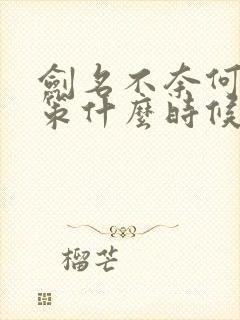 劍名不奈何
策什麼時候
榴芒